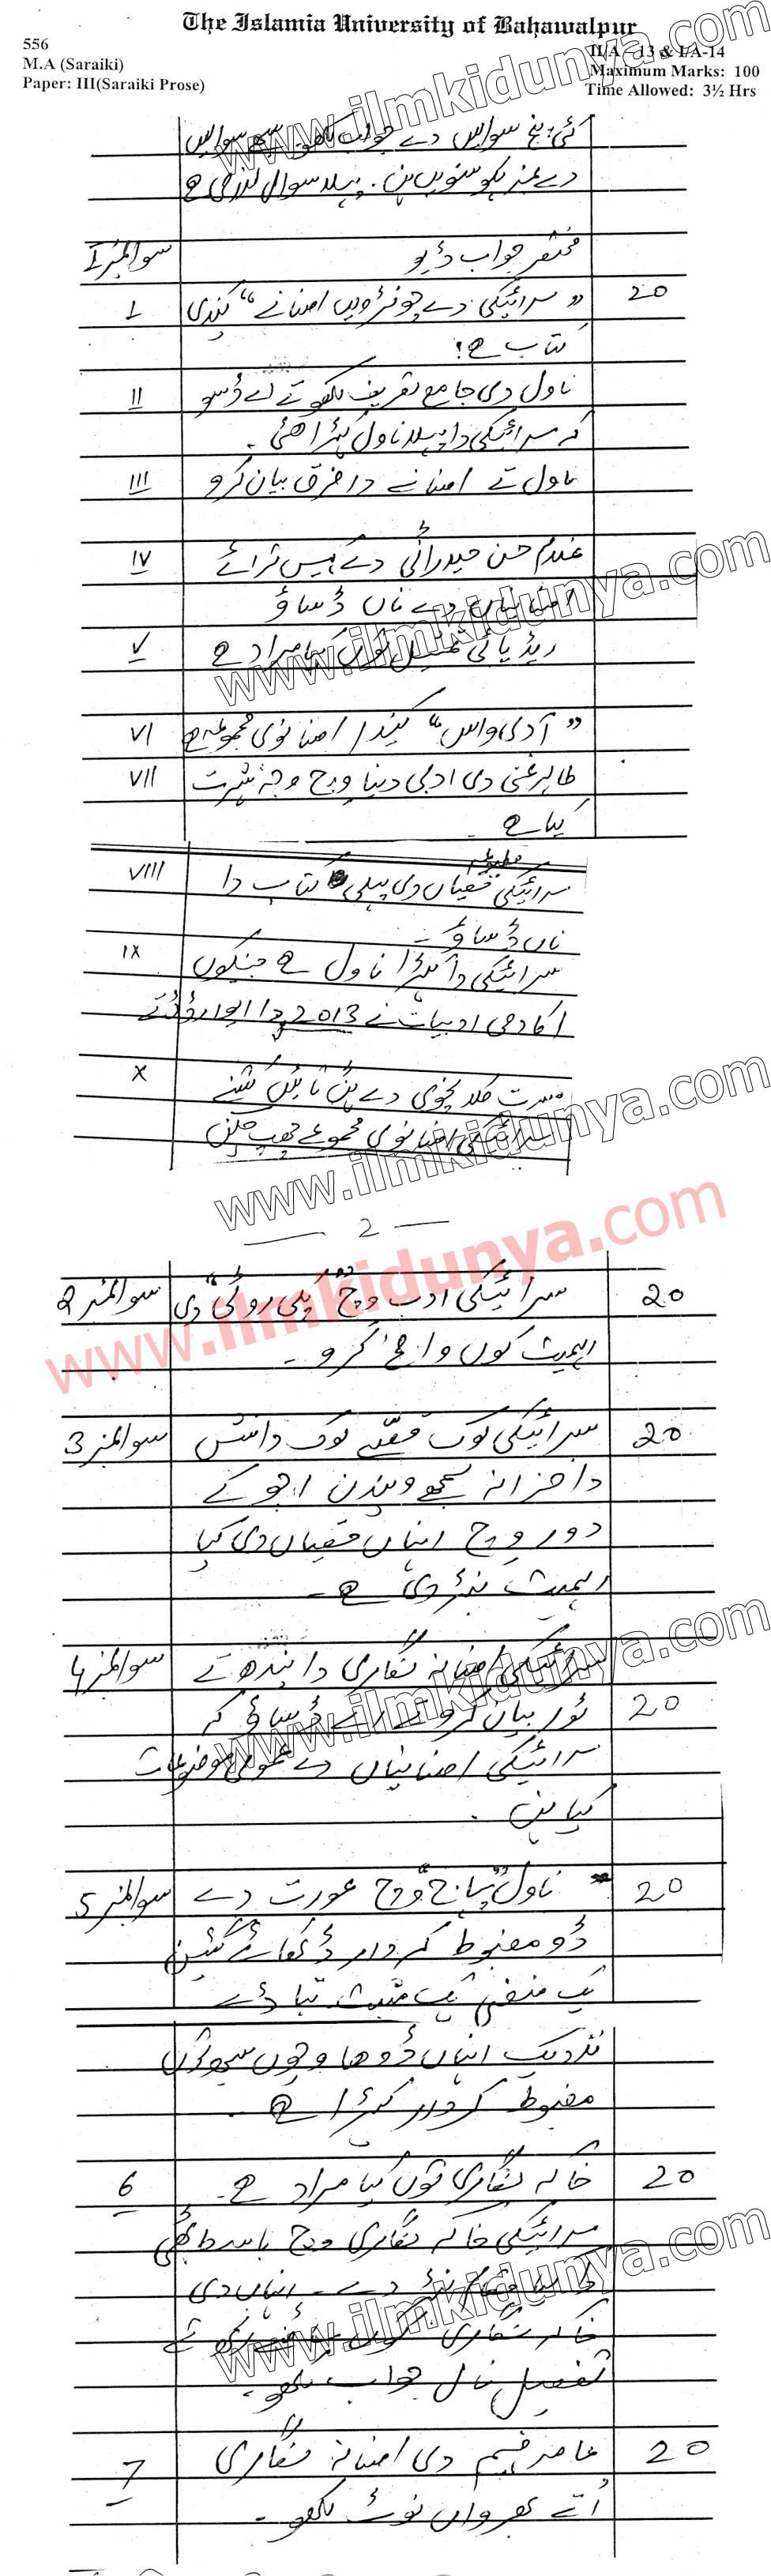 The Islamia University of Bahawalpur
556
II/A - 13 & I/A-14
M.A (Saraiki)
Maximum Marks: 100
Paper: III(Saraiki Prose)
Time Allowed: 3½ Hrs
www.ilmkidunya.com
کئی پنج سوالیں دے جواب لکھو۔ سبھے سوالیں
دے نمبر ہکو جئے ہن۔ پہلا سوال لازمی ہے
سوال نمبر 1
مختصر جواب ڈیو
I
"سرائیکی دے چونڑویں افسانے" کیندی
20
کتاب ہے؟
II
ناول دی جامع تعریف لکھو تے اے ڈسو
کہ سرائیکی دا پہلا ناول کیڑا ھئی۔
III
ناول تے افسانے دا فرق بیان کرو
IV
غلام حسن حیدرانی دے
دے ناں ڈساؤ
www.ilmkidunya.com
V
ریڈیائی کیا مراد ہے
VI
"آدی واس" کیندا افسانوی مجموعہ ہے
VII
طاہر غنی دی ادبی دنیا وچ وجہ شہرت
کیا ہے
VIII
سرائیکی قصیاں دی پہلی مطبوعہ کتاب دا
ناں ڈساؤ۔
IX
سرائیکی دا کیڑا ناول ہے جینکوں
اکادمی ادبیات نے 2013 دا ایوارڈ ڈتے
X
مسرت کلانچوی دے ہن تائیں کتنے
سرائیکی افسانوی مجموعے چھپ چکن
www.ilmkidunya.com
2
www.ilmkidunya.com
سوال نمبر 2
سرائیکی ادب وچ دی
20
اہمیت کوں واضح کرو۔
سوال نمبر 3
سرائیکی لوک قصے لوک دانش
20
دا خزانہ سمجھے ویندن اجوکے
دور وچ انہاں قصیاں دی کیا
اہمیت بنڑدی ہے۔
سوال نمبر 4
سرائیکی افسانہ نگاری دا پندھ تے
www.ilmkidunya.com
ٹور بیان کرو تے اے ڈساؤ کہ
20
سرائیکی افسانیاں دے عمومی موضوعات
کیا ہن۔
سوال نمبر 5
ناول "سانجھ" وچ عورت دے
20
ڈو مضبوط کردار ڈکھائے گئین
ہک منفی ہک مثبت تہاڈے
نزدیک انہاں ڈوہا وچوں
مضبوط کردار کیڑا ہے۔
6
خاکہ نگاری توں کیا مراد ہے۔
20
سرائیکی خاکہ نگاری وچ باسط بھٹی
دا کیا مقام بنڑدے۔ انہاں دی
خاکہ نگاری
www.ilmkidunya.com
تفصیل نال جواب لکھو۔
7
عامر فہیم دی افسانہ نگاری
20
اُتے بھرواں نوٹ لکھو۔